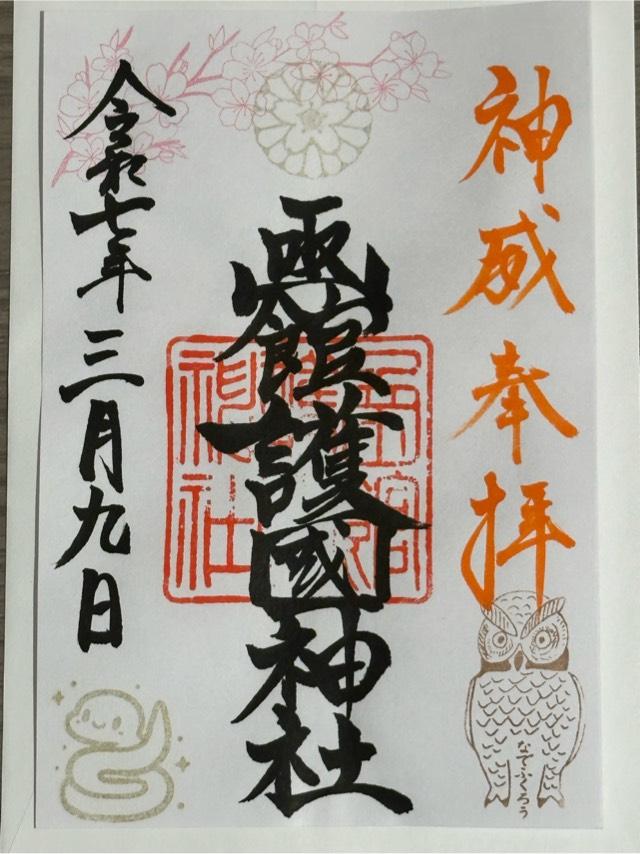 神威奉拝
函館護國神社
令和七年三月九日
なでふくろう